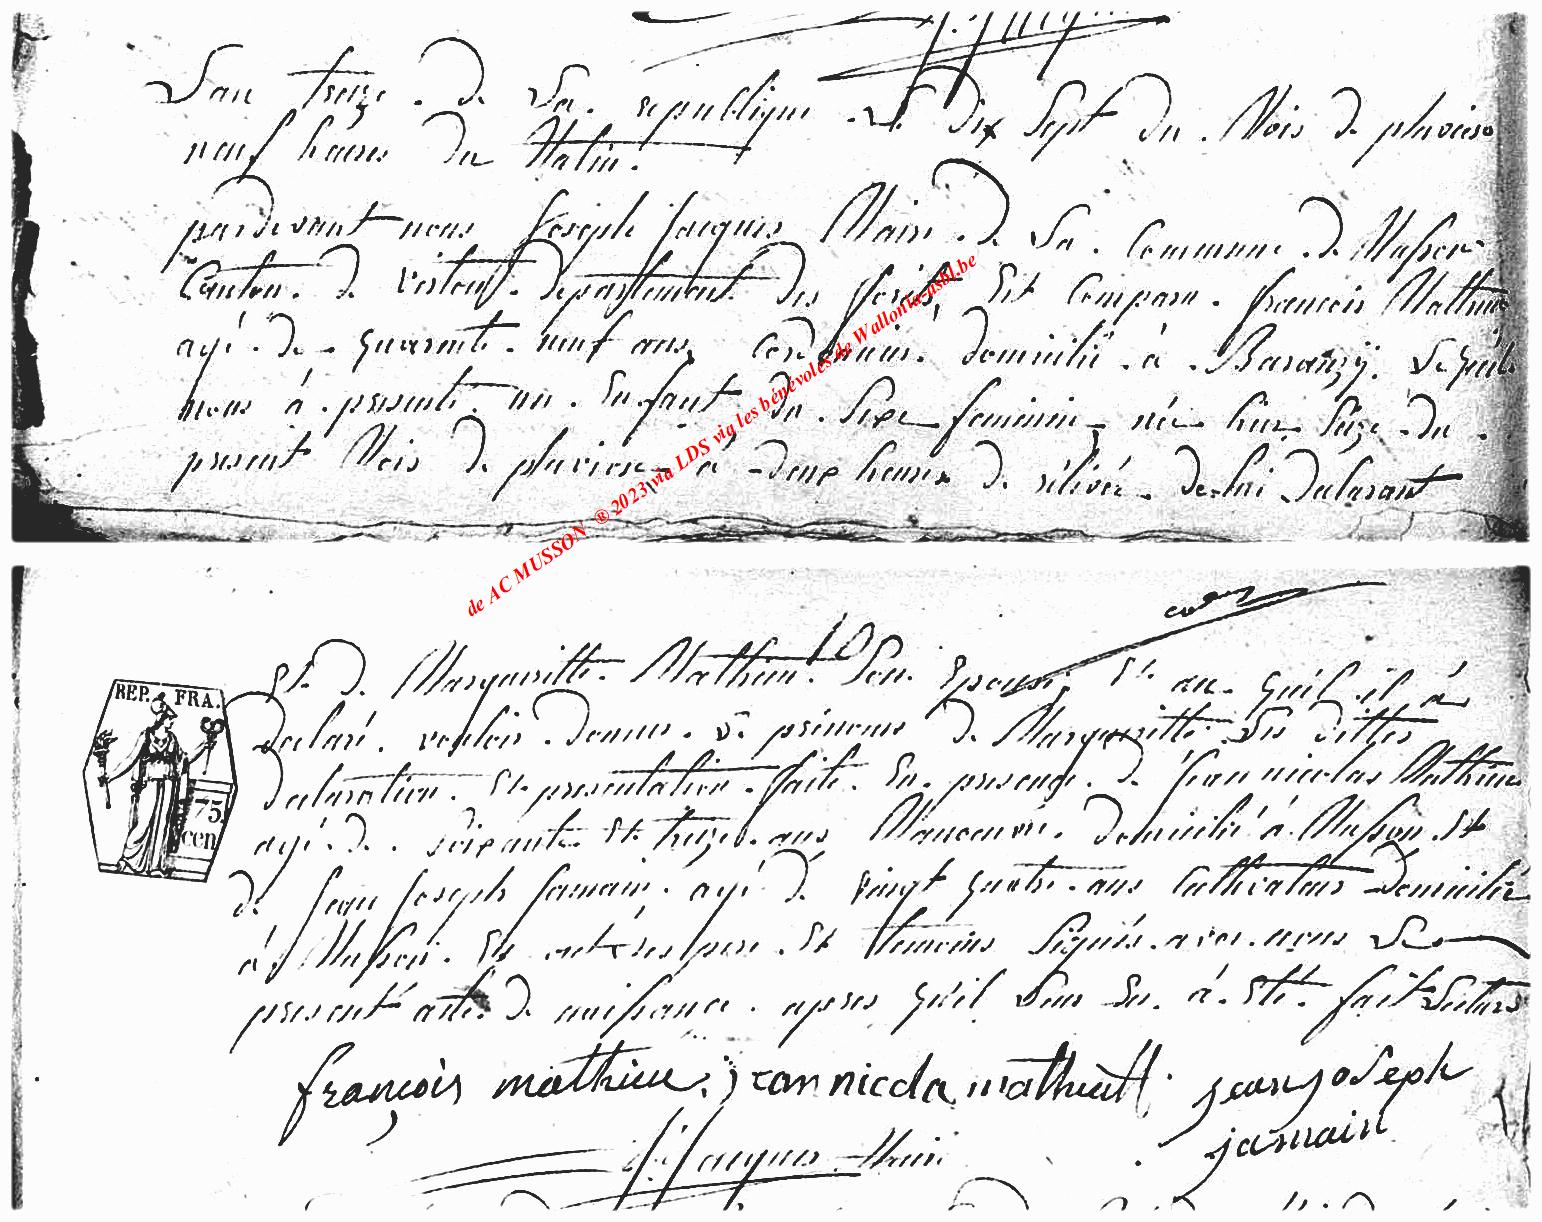 L'an treize de La republique Le dix Sept du Mois de pluviose
neuf heures du Matin.
pardevant nous Joseph Jacques Maire de La Commune de Musson
Canton de virton departement des forets Est Comparu françois Mathieu
agé de quarante neuf ans, cordonnier domicilié à Baranzÿ. Le quel
nous à presenté un Enfant du Sexe feminin née hier Seize du
present Mois de pluviose à douze heures de rélévée de lui declarant
de AC MUSSON ® 2023 via LDS via les bénévoles de Wallonia-asbl.be
Et de Margueritte Mathieu Son Epouse Et au quel il à
REP. FRA.
75
cen
declaré vouloir donner le prénoms de Margueritte Les dittes
declaration Et presentation faite En presence de Jean nicolas Mathieu
agé de soixante Et treize ans Manoeuvre domicilié à Musson Et
de Jean Joseph Jamain agé de vingt quatre ans Cultivateur domicilié
à Musson Et ont Les pere Et temoins Signés avec nous Le
present acte de naissance apres qu'il Leur En à Eté fait Lecture
françois mathieu jean nicola mathieu jean joseph
jamain
J. Jacques Maire